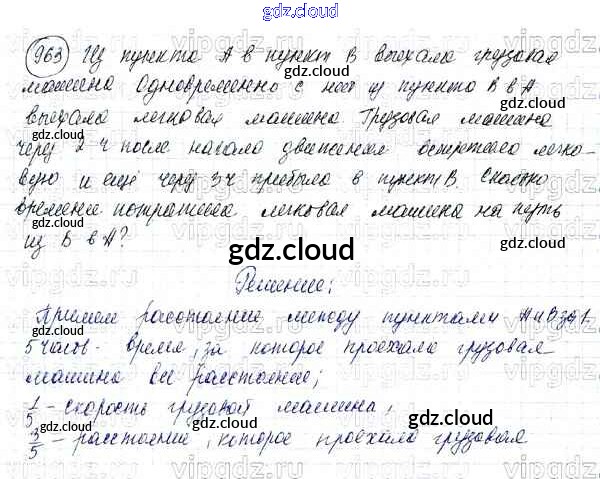 gdz.cloud
963 Из пункта А в пункт В выехала грузовая
машина. Одновременно с ней из пункта В в А
выехала легковая машина. Грузовая машина
через 2 ч после начала движения встретила легко-
вую и ещё через 3 ч прибыла в пункт В. Сколько
времени потратила легковая машина на путь
из В в А?
Решение:
Примем расстояние между пунктами А и В за 1.
5 часов - время, за которое проехала грузовая
машина всё расстояние;
1/5 - скорость грузовой машины;
3/5 - расстояние, которое проехала грузовая